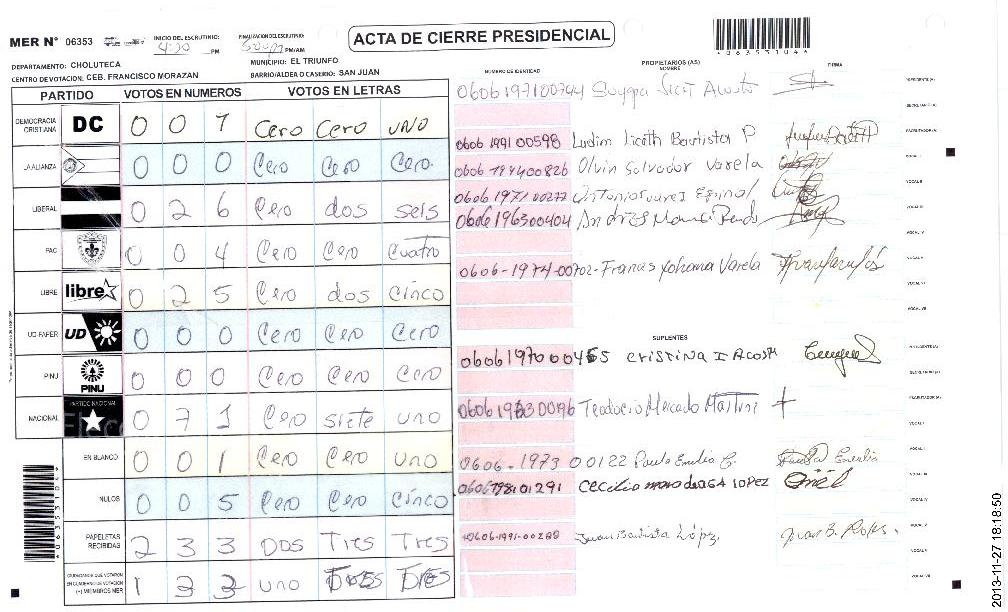 MER N° 06353 INICIO DEL ESCRUTINIO: 4:30 PM FINALIZACION DEL ESCRUTINIO: PM/AM
ACTA DE CIERRE PRESIDENCIAL
4063531044
DEPARTAMENTO: CHOLUTECA MUNICIPIO: EL TRIUNFO
CENTRO DE VOTACION: CEB. FRANCISCO MORAZAN BARRIO/ALDEA O CASERIO: SAN JUAN
PARTIDO VOTOS EN NUMEROS VOTOS EN LETRAS
DEMOCRACIA CRISTIANA DC 0 0 1 Cero Cero uno
LA ALIANZA 0 0 0 Cero Cero Cero
LIBERAL 0 2 6 Cero dos seis
PAC 0 0 4 Cero Cero cuatro
LIBRE libre 0 2 5 Cero dos cinco
UD-FAPER UD 0 0 0 Cero Cero Cero
PINU PINU 0 0 0 Cero Cero Cero
NACIONAL PARTIDO NACIONAL 0 7 1 Cero siete uno
EN BLANCO 0 0 1 Cero Cero uno
NULOS 0 0 5 Cero Cero cinco
PAPELETAS RECIBIDAS 2 3 3 DOS Tres Tres
CIUDADANOS QUE VOTARON EN CUADERNO DE VOTACION (+) MIEMBROS MER 1 3 3 uno Tres Tres
4063531044
PROPIETARIOS (AS)
NUMERO DE IDENTIDAD NOMBRE FIRMA
0606197100744
0606 1991 00598 Ludim Liceth Bautista P
Olvin Salvador Varela
0606 1971 00277
0606 196300404
0606-1974-00702- Francis Yohana Varela
SUPLENTES
0606197000455 CRISTINA I ACOSTA
Teodocio Mercado Martinez
0606-1973 00122 Paula Emilia C.
0606198101291 LOPEZ
0606-1991-00288 Juan Bautista López,
Juan B. Lopes.
2013-11-27 18:18:50